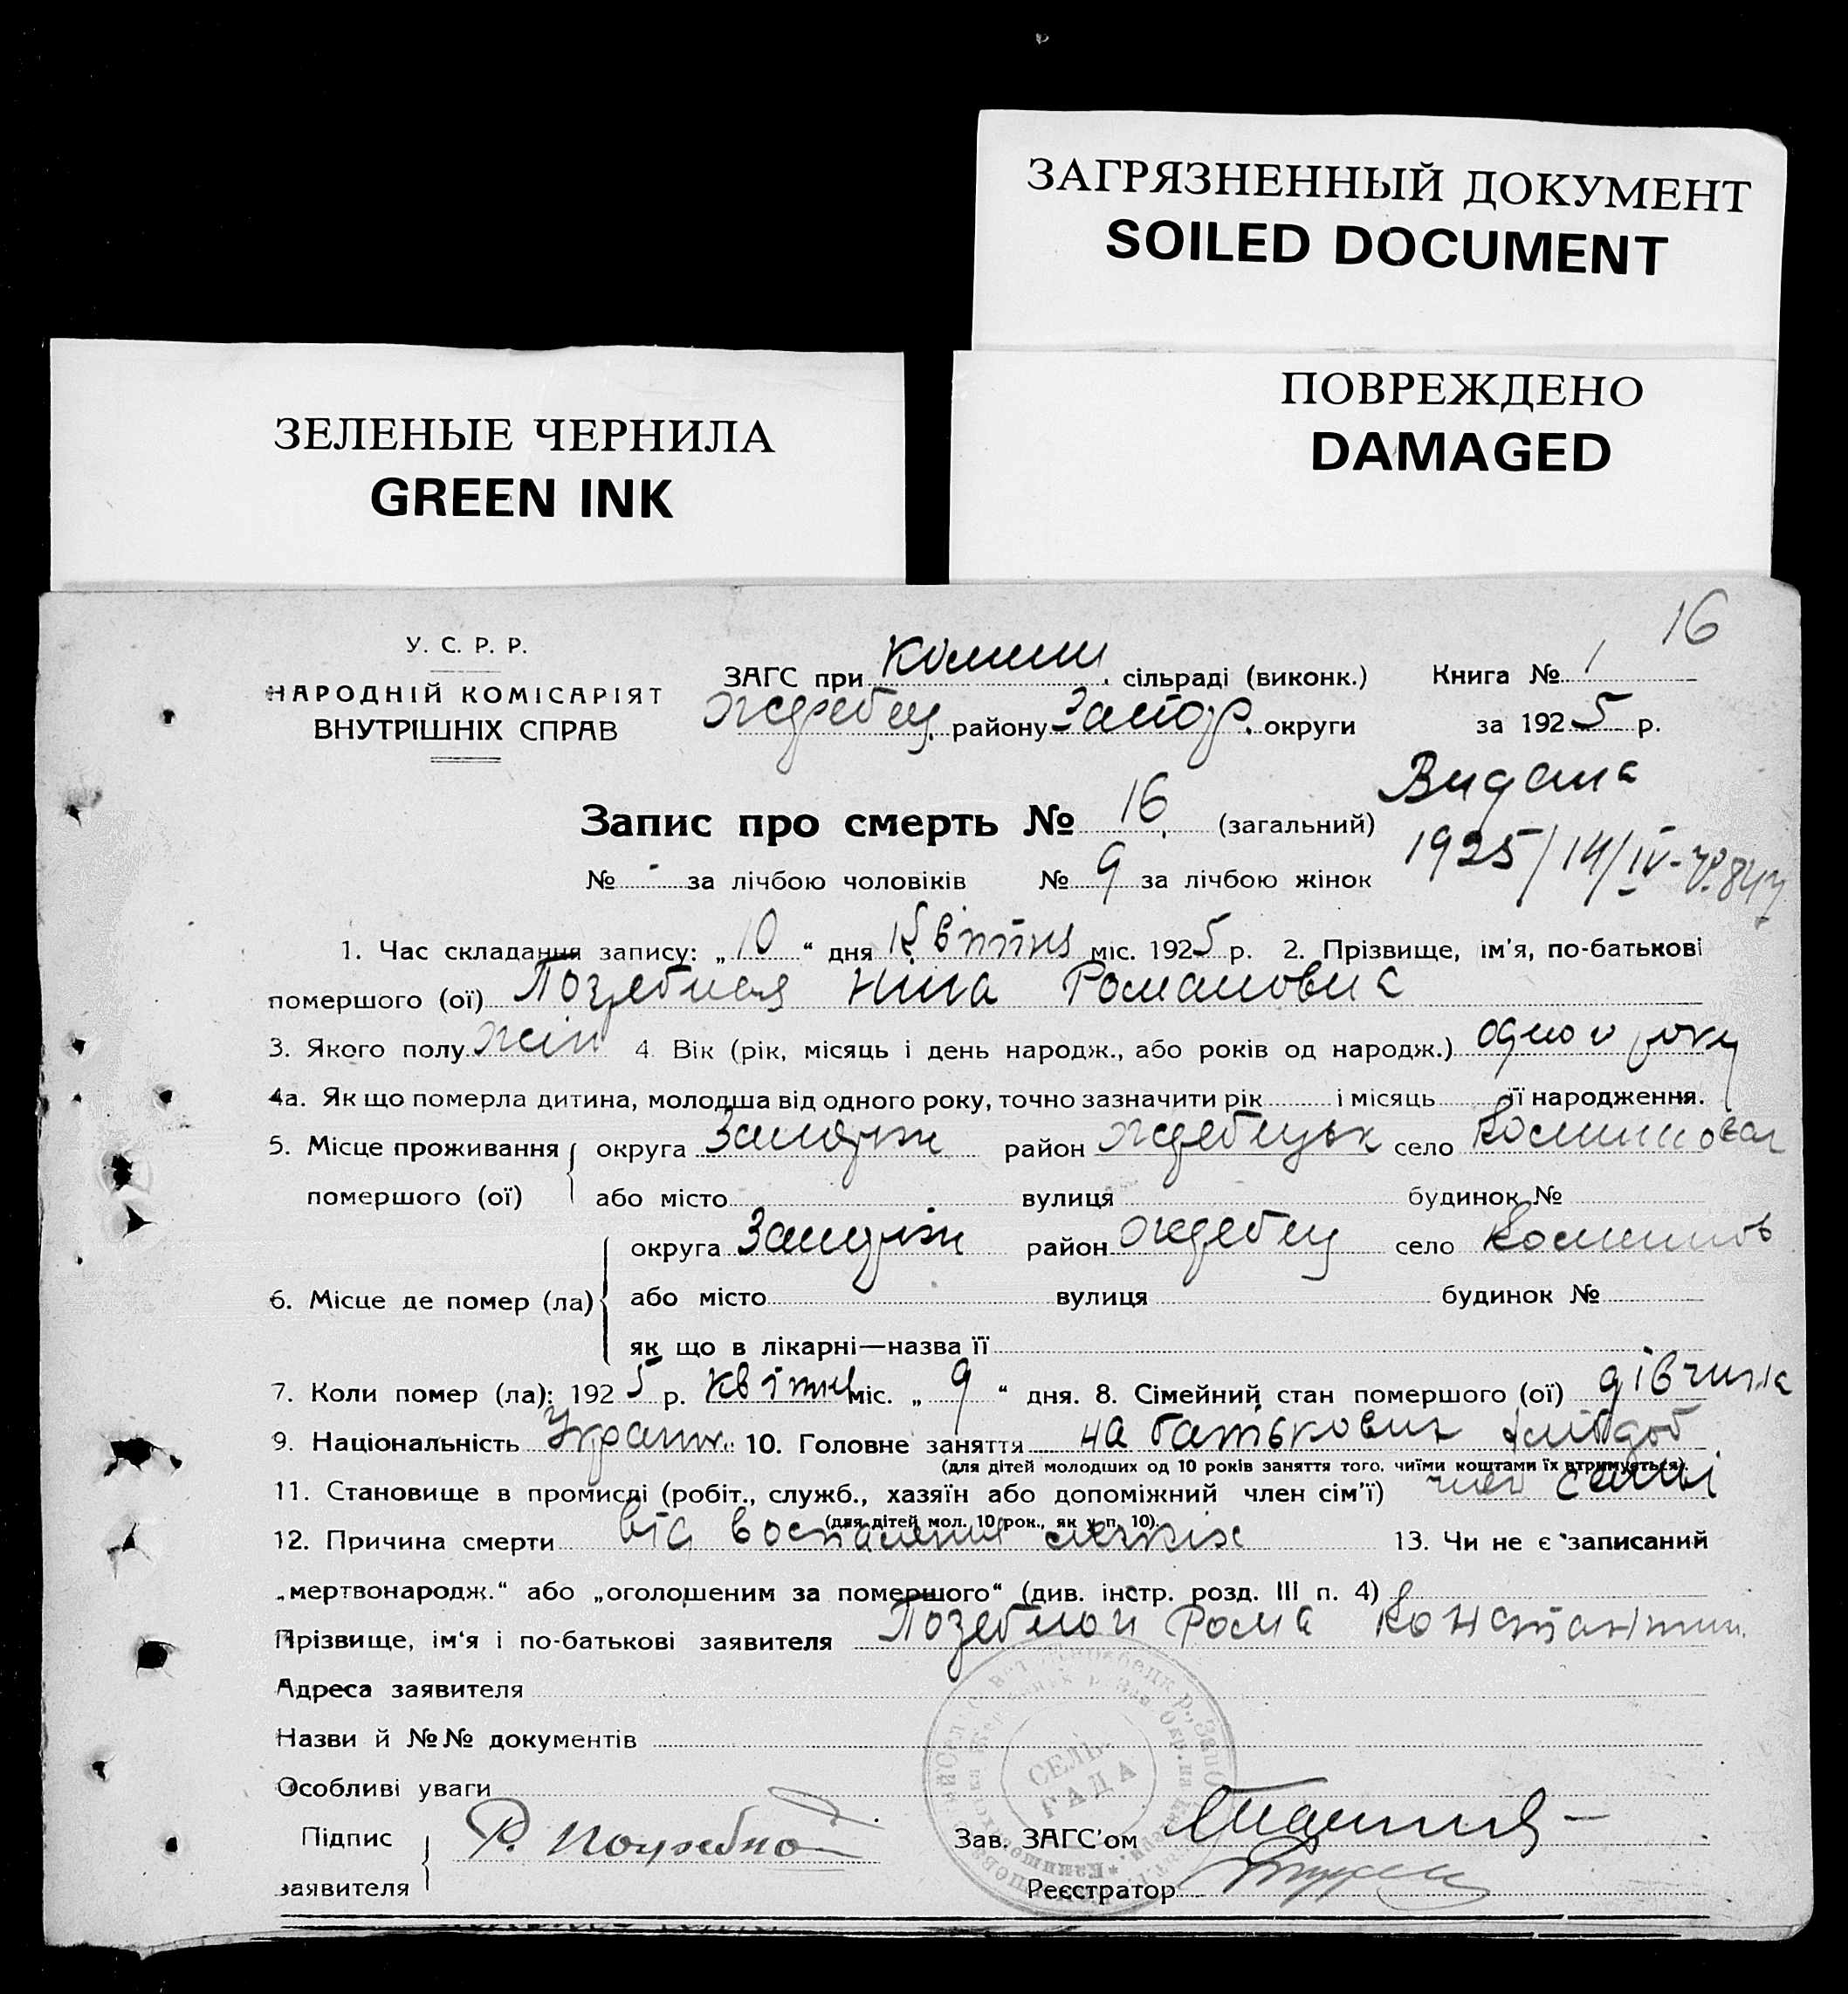 ЗАГРЯЗНЕННЫЙ ДОКУМЕНТ
SOILED DOCUMENT
ПОВРЕЖДЕНО
DAMAGED
ЗЕЛЕНЫЕ ЧЕРНИЛА
GREEN INK
16
У. С. Р. Р.
НАРОДНІЙ КОМІСАРІЯТ
ВНУТРІШНІХ СПРАВ
ЗАГС при Комиш. сільраді (виконк.) Книга № 1
Жеребец. району Запор. округи за 1925 р.
Видана
Запис про смерть № 16 (загальний)
1925/14/IV
№ - за лічбою чоловіків № 9 за лічбою жінок
1. Час складання запису: „10“ дня Квітня міс. 1925 р. 2. Прізвище, ім'я, по-батькові
помершого (ої) Ніна Романовна
3. Якого полу жін 4. Вік (рік, місяць і день народж., або років од народж.) одного року
4а. Як що померла дитина, молодша від одного року, точно зазначити рік і місяць її народження.
5. Місце проживання округа Запоріж район Жеребецьк село
помершого (ої) або місто вулиця будинок №
округа Запоріж район Жеребец село
6. Місце де помер (ла) або місто вулиця будинок №
як що в лікарні—назва її
7. Коли помер (ла): 1925 р. Квітня міс. „9“ дня. 8. Сімейний стан помершого (ої) дівчина
9. Національність Украін. 10. Головне заняття на батькових
(для дітей молодших од 10 років заняття того, чиїми коштами їх втримується).
11. Становище в промислі (робіт., служб., хазяїн або допоміжний член сім'ї) член семьі
(для дітей мол. 10 рок., як у п. 10).
12. Причина смерти від воспаления легких 13. Чи не є записаний
„мертвонародж.“ або „оголошеним за помершого“ (див. інстр. розд. III п. 4)
Прізвище, ім'я і по-батькові заявителя Рома Константин.
Адреса заявителя
Назви й №№ документів
Особливі уваги
СЕЛЬ-
РАДА
Підпис
заявителя
Р.
Зав. ЗАГС'ом
Реєстратор